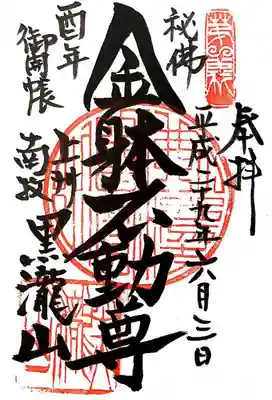 奉拝
平成二十九年六月三日
秘佛
金躰不動尊
酉年
御開帳
上州
南牧 黒瀧山